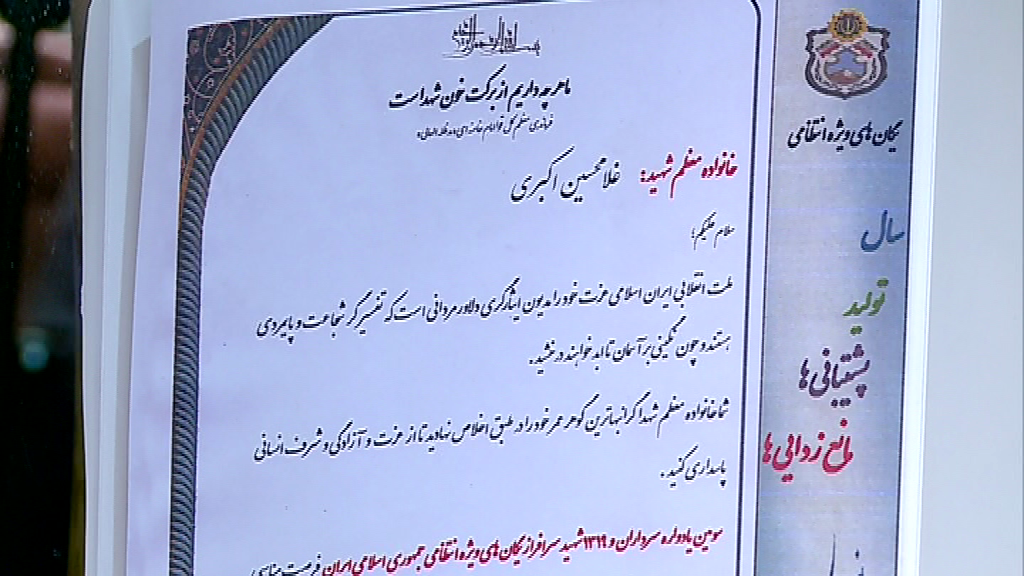 بسم الله الرحمن الرحیم
ما هر چه داریم از برکت خون شهداست
فرماندهی معظم کل قوا امام خامنه ای
خانواده معظم شهید: غلامحسین اکبری
سلام علیکم؛
ملت انقلابی ایران اسلامی عزت خود را مدیون ایثارگری دلاور مردانی است که تفسیرگر شجاعت و پایمردی
هستند و چون نگینی بر آسمان تا ابد خواهند درخشید.
شما خانواده معظم شهدا گرانبهاترین گوهر عمر خود را در طبق اخلاص نهادید تا از عزت و آزادگی و شرف انسانی
پاسداری کنید.
سومین یادواره سرداران و ۱۳۱۹ شهید سرافراز یگان های ویژه انتظامی جمهوری اسلامی ایران فرصت مناسبی
یگان های ویژه انتظامی
سال
تولید
پشتیبانی ها
مانع زدایی ها